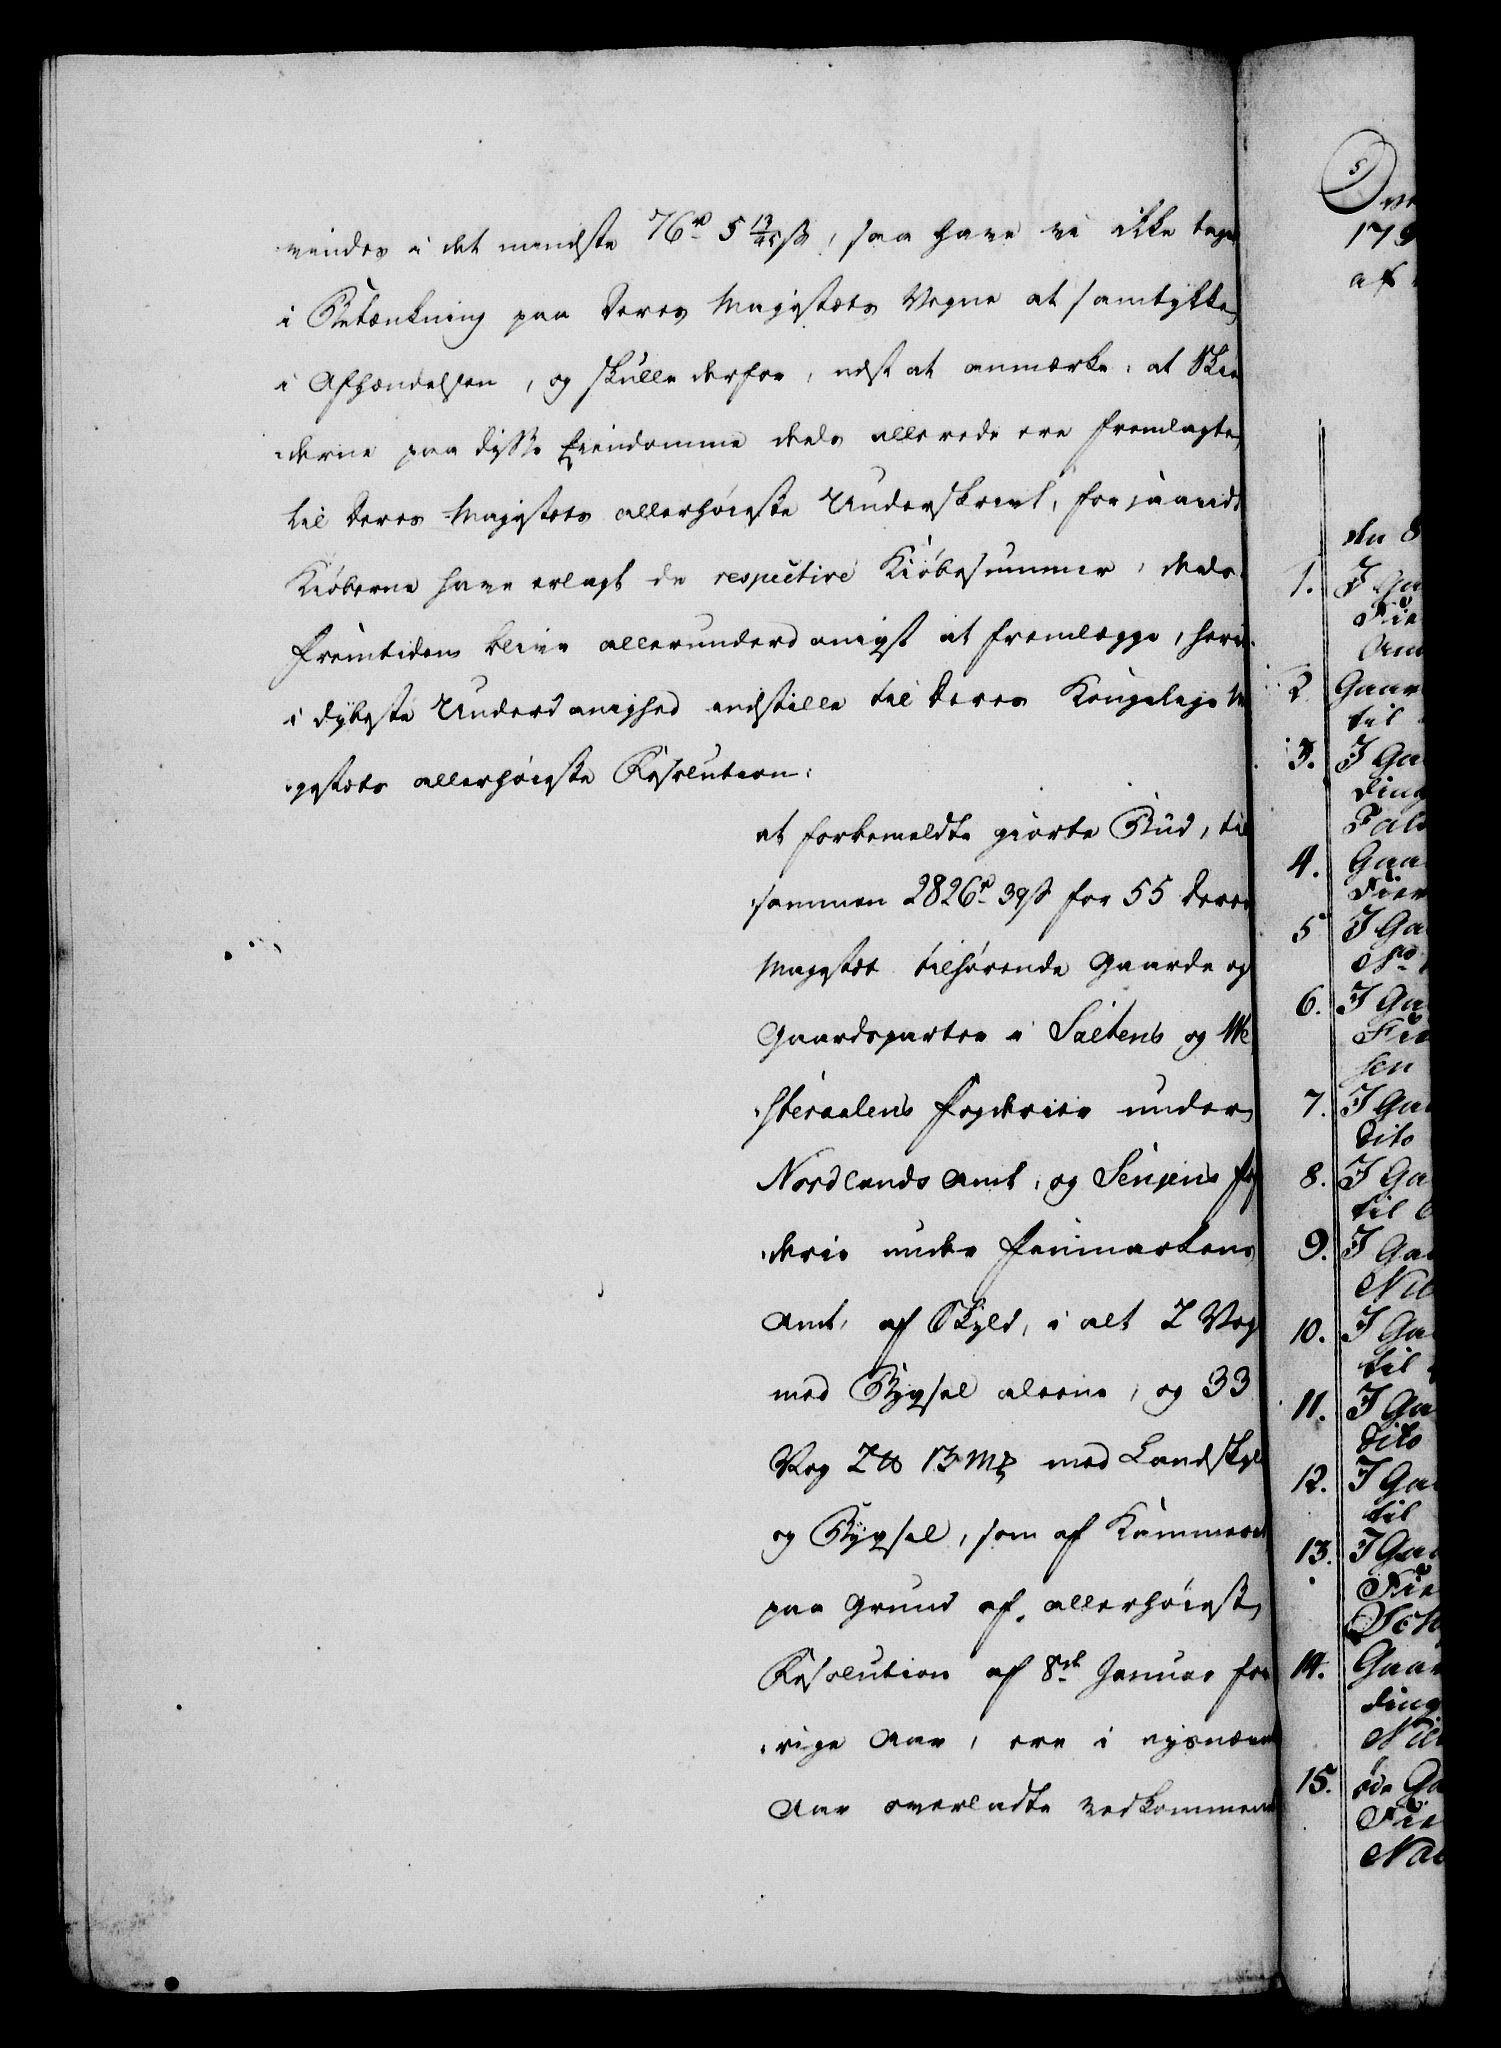 vindes i det mindste 76rd 5 13/45 ß, saa have vi ikke tag
i Betænkning paa Deres Majestæts Vegne at samtykke
i Afhændelsen, og skulle derfor, næst at anmærke, at Skiø
derne paa disse Eiendomme deels allerede ere fremlagte
til Deres Majestæts allerhøieste Underskrivt, forsaavidt
Kiøberne have erlagt de respective Kiøbesummer, deels
fremtidens blive allerunderdanigst at fremlægge, her
i dybeste Underdanighed indstille til Deres Kongelige M
jestæts allerhøieste Resolution:
at forbemeldte giorte Bud, til
sammen 2826rd 39ß for 55 Deres
Majestæt tilhørende Gaarde og
Gaardsparter i Saltens og We
steraalens Fogderier under
Nordlands Amt, og Senjens Fog
derie under Finmarkens
Amt, af Skyld, i alt 2 Vog
med Bygsel aleene, og 33
Vog 2 ℔ 13 Mk med Landskyld
og Bygsel, som af Kammeret
paa Grund af allerhøieste
Resolution af 8de Januar for
rige Aar, ere i nysnævnte
Aar overladte vedkommende
5
179
af
den 8
1. I Ga
Fie
2 Gaar
til
3. I Ga
ding
4. Gaa
Fier
5 I Ga
6. I Ga
sen
7. I Ga
dito
8. I Ga
til
9. I Ga
10. I Ga
til
11. I Ga
dito
12. I Ga
til
13. I Ga
Fie
14. Gaar
ding
Nil
15. øde Ga
Fie